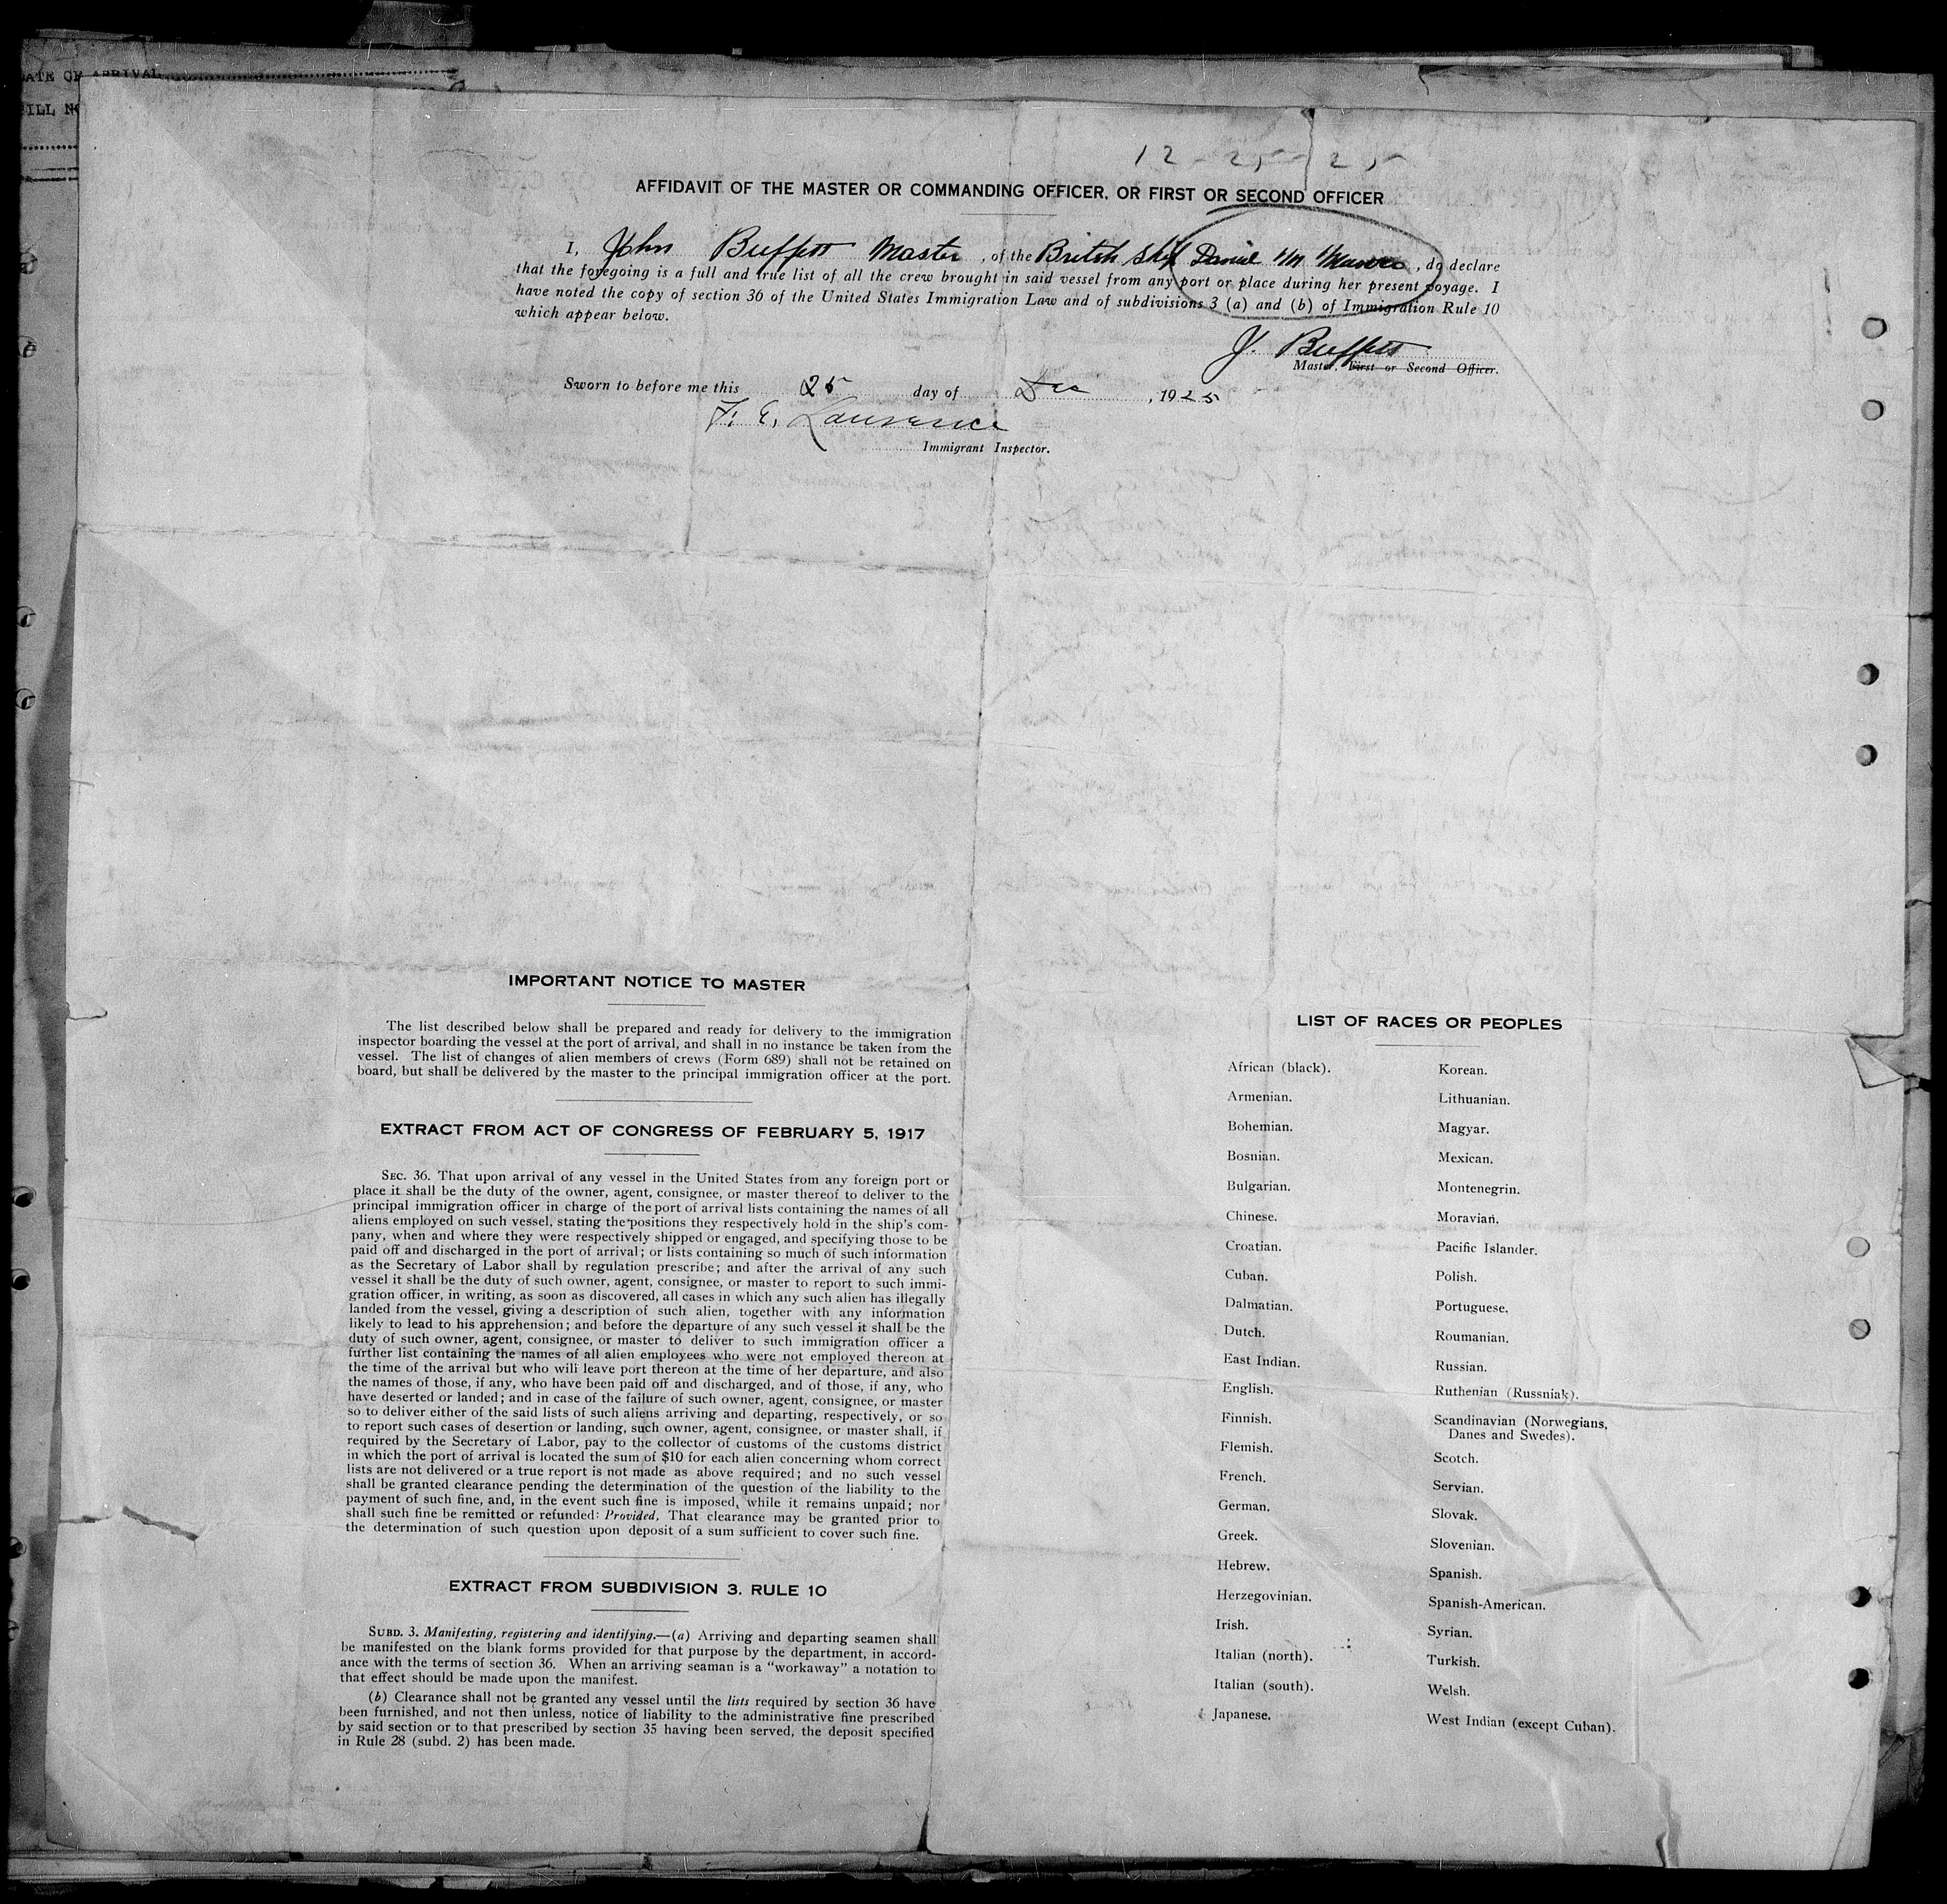 DATE OF ARRIVAL
12-25-25
AFFIDAVIT OF THE MASTER OR COMMANDING OFFICER, OR FIRST OR SECOND OFFICER
I, John Buffett Master, of the British Daniel, do declare
that the foregoing is a full and true list of all the crew brought in said vessel from any port or place during her present voyage. I
have noted the copy of section 36 of the United States Immigration Law and of subdivisions 3 (a) and (b) of Immigration Rule 10
which appear below.
J. Buffett
Master. First or Second Officer.
Sworn to before me this 25 day of Dec, 1925
F. E. Lawrence
Immigrant Inspector.
IMPORTANT NOTICE TO MASTER
The list described below shall be prepared and ready for delivery to the immigration
inspector boarding the vessel at the port of arrival, and shall in no instance be taken from the
vessel. The list of changes of alien members of crews (Form 689) shall not be retained on
board, but shall be delivered by the master to the principal immigration officer at the port.
EXTRACT FROM ACT OF CONGRESS OF FEBRUARY 5, 1917
SEC. 36. That upon arrival of any vessel in the United States from any foreign port or
place it shall be the duty of the owner, agent, consignee, or master thereof to deliver to the
principal immigration officer in charge of the port of arrival lists containing the names of all
aliens employed on such vessel, stating the positions they respectively hold in the ship's com-
pany, when and where they were respectively shipped or engaged, and specifying those to be
paid off and discharged in the port of arrival; or lists containing so much of such information
as the Secretary of Labor shall by regulation prescribe; and after the arrival of any such
vessel it shall be the duty of such owner, agent, consignee, or master to report to such immi-
gration officer, in writing, as soon as discovered, all cases in which any such alien has illegally
landed from the vessel, giving a description of such alien, together with any information
likely to lead to his apprehension; and before the departure of any such vessel it shall be the
duty of such owner, agent, consignee, or master to deliver to such immigration officer a
further list containing the names of all alien employees who were not employed thereon at
the time of the arrival but who will leave port thereon at the time of her departure, and also
the names of those, if any, who have been paid off and discharged, and of those, if any, who
have deserted or landed; and in case of the failure of such owner, agent, consignee, or master
so to deliver either of the said lists of such aliens arriving and departing, respectively, or so
to report such cases of desertion or landing, such owner, agent, consignee, or master shall, if
required by the Secretary of Labor, pay to the collector of customs of the customs district
in which the port of arrival is located the sum of $10 for each alien concerning whom correct
lists are not delivered or a true report is not made as above required; and no such vessel
shall be granted clearance pending the determination of the question of the liability to the
payment of such fine, and, in the event such fine is imposed, while it remains unpaid; nor
shall such fine be remitted or refunded: Provided, That clearance may be granted prior to
the determination of such question upon deposit of a sum sufficient to cover such fine.
EXTRACT FROM SUBDIVISION 3, RULE 10
SUBD. 3. Manifesting, registering and identifying.—(a) Arriving and departing seamen shall
be manifested on the blank forms provided for that purpose by the department, in accord-
ance with the terms of section 36. When an arriving seaman is a "workaway" a notation to
that effect should be made upon the manifest.
(b) Clearance shall not be granted any vessel until the lists required by section 36 have
been furnished, and not then unless, notice of liability to the administrative fine prescribed
by said section or to that prescribed by section 35 having been served, the deposit specified
in Rule 28 (subd. 2) has been made.
LIST OF RACES OR PEOPLES
African (black).
Armenian.
Bohemian.
Bosnian.
Bulgarian.
Chinese.
Croatian.
Cuban.
Dalmatian.
Dutch.
East Indian.
English.
Finnish.
Flemish.
French.
German.
Greek.
Hebrew.
Herzegovinian.
Irish.
Italian (north).
Italian (south).
Japanese.
Korean.
Lithuanian.
Magyar.
Mexican.
Montenegrin.
Moravian.
Pacific Islander.
Polish.
Portuguese.
Roumanian.
Russian.
Ruthenian (Russniak).
Scandinavian (Norwegians,
Danes and Swedes).
Scotch.
Servian.
Slovak.
Slovenian.
Spanish.
Spanish-American.
Syrian.
Turkish.
Welsh.
West Indian (except Cuban).